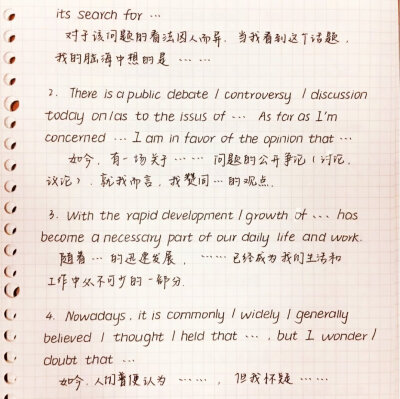 its search for ...
对于该问题的看法因人而异. 当我看到这个话题,
我的脑海中想的是 ... ...
2. There is a public debate / controversy / discussion
today on/as to the issus of ... As for as I'm
concerned ... I am in favor of the opinion that ...
如今, 有一场关于 ... ... 问题的公开争论(讨论,
议论), 就我而言, 我赞同 ... 的观点.
3. With the rapid development / growth of ... has
become a necessary part of our daily life and work.
随着 ... 的迅速发展, ... ... 已经成为我们生活和
工作中必不可少的一部分.
4. Nowadays, it is commonly / widely / generally
believed / thought / held that ..., but I wonder /
doubt that ...
如今, 人们普便认为 ... ..., 但我怀疑 ... ...